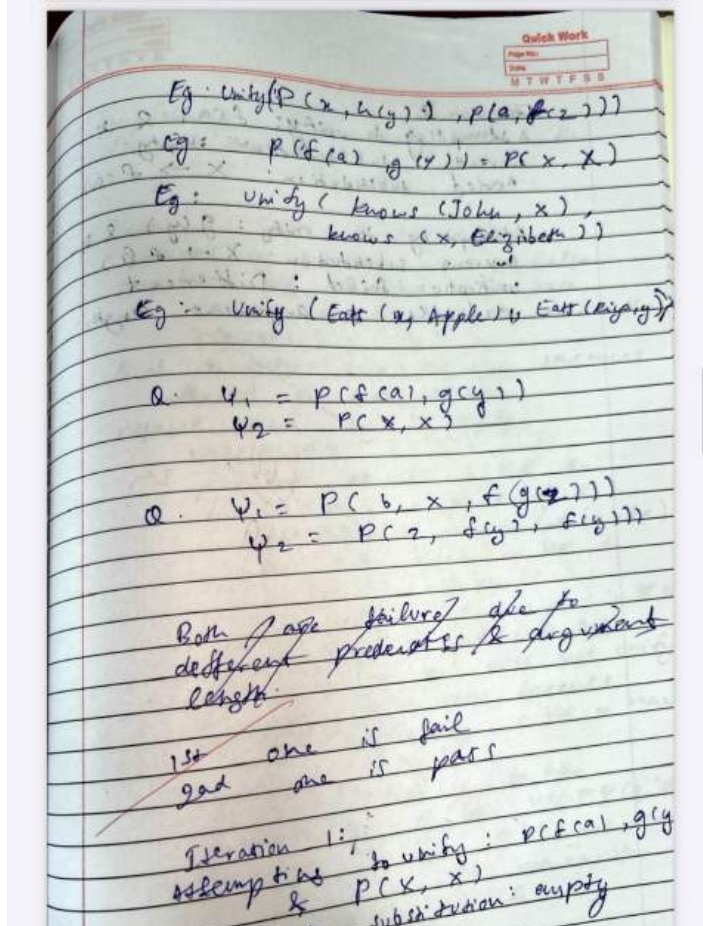 Quick Work
Page No.:
Date:
M T W T F S S
Eg. Unify(P(x, h(y)), P(a, f(z)))
Eg: P(f(a) g(Y)) = P(x, X)
Eg: Unify( knows (John, x),
knows (x, Elizibeth))
Eg: Unify (Eats (x, Apple) Eats (Riya, y))
Q. Ψ1 = P(f(a), g(y))
Ψ2 = P(x, x)
Q. Ψ1 = P(b, x, f(g(z)))
Ψ2 = P(z, f(y), f(y)))
Both are failure due to
defferent & arguement
length.
1st one is fail
2nd one is pass
Iteration 1:
Attempting to unify: P(f(a), g(y
& P(X, x)
substitution: empty